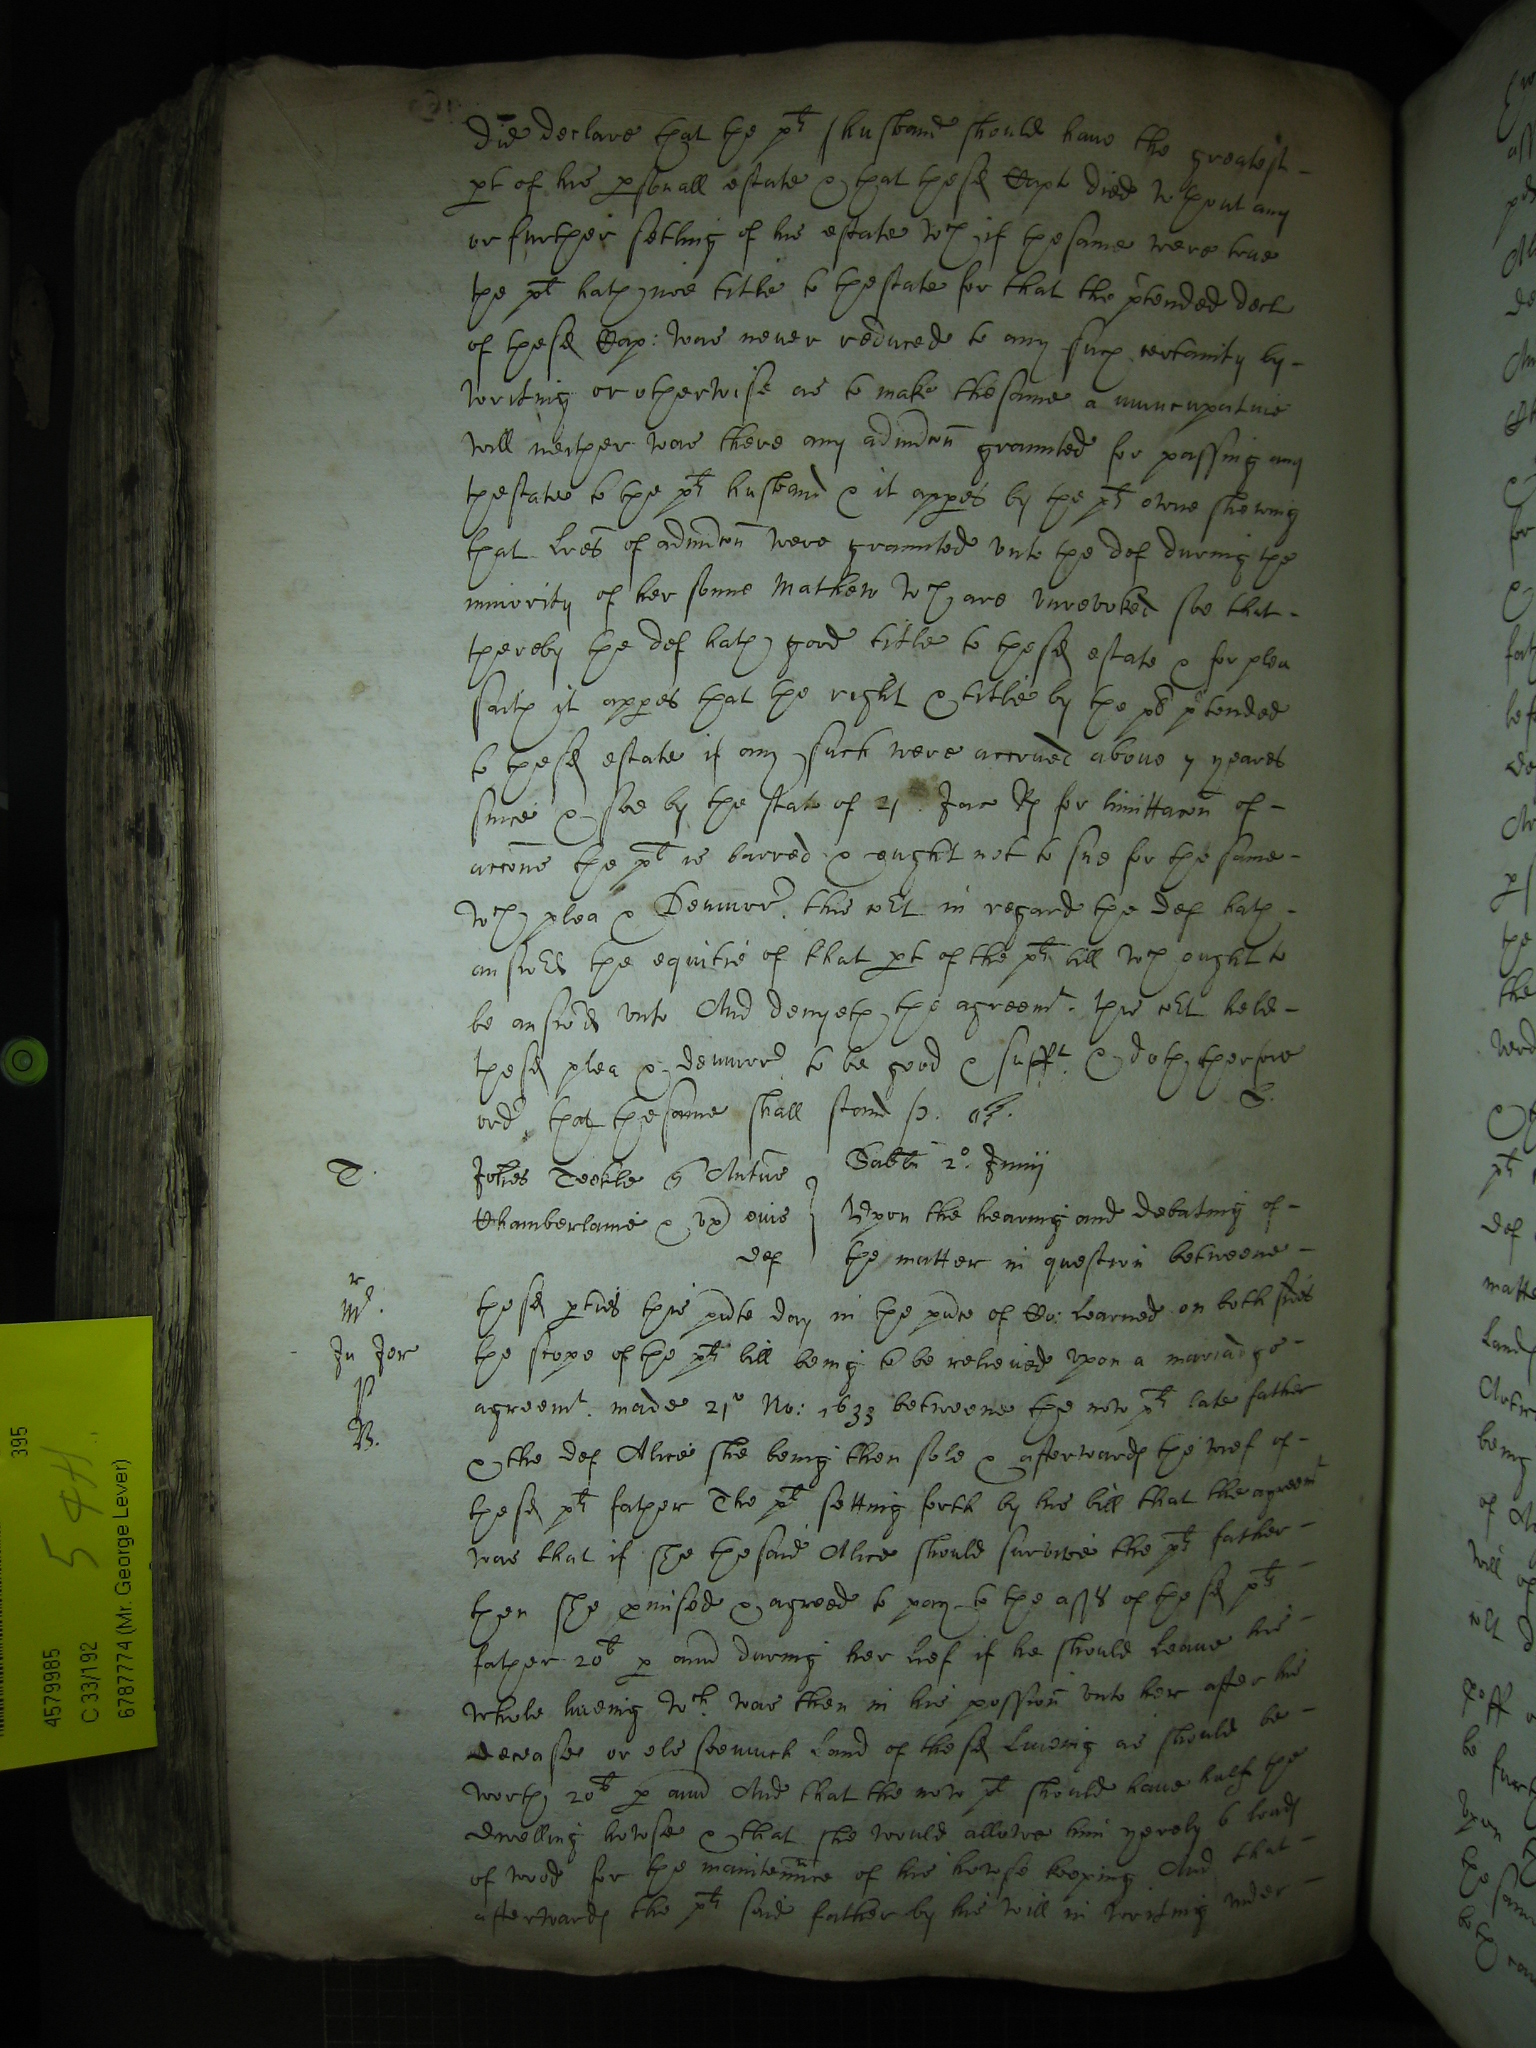 did declare that the plts husband should have the greatest
pt of his psonall estate & that the sd Capt died wthout any
or further setling of his estate wch if the same were true
the plt hath noe title to the state for that the ptended decl
of the sd Cap: was never reduced to any such certainty by
writing or otherwise as to make the same a nuncupative
will neither was there any admicon graunted for passing any
the state to the plts husband & it appes by the plts owne shewing
that lres of admicon were graunted unto the def during the
minority of her sonne Mathew wch are unrevoked soe that
thereby the def hath good title to the sd estate & for plea
saith it appes that the right & title by the plt ptended
to the sd estate if any such were accrued above 7 yeares
since & soe by the stat of 21 Jac R for limittacon of
accons the plt is barred & ought not to sue for the same
wch plea & Demurr this Cot in regard the def hath
answed the equitie of that pt of the plts bill wch ought to
be answed unto And denyeth the agreemt this Cot held
the sd plea & demurr to be good & sufft & doth therfore
ord that the same shall stand
T. Johes Teckle Antus Sabbti 2o Junij
Chamberlaine & ux eius Upon the hearing and debating of
def the matter in question betweene
the sd pties this psnte day in the psnce of Co: learned on both sides
the scope of the plts bill being to be releived upon a mariadge
agreemt made 21o No: 1633 betweene the now plts late father
& the def Alice she being then sole & afterwards the wief of
the sd plts father The plt setting forth by his bill that the agreemt
was that if she the said Alice should survive the plts father
then she pmised & agreed to pay to the ass of the sd plts
father 20l p ann during her lief if he should leave his
whole liveing wch was then in his possion unto her after his
decease or els soe much land of the sd liveing as should be
worth 20l p ann And that the now plt should have half the
dwelling howse & that she would allowe him yerely 6 loads
of wood for the maintennce of his howse keeping And that
afterwards the plts said father by his will in writing under
In Jer
B.
395
54H.
4579985
C 33/192
6787774 (Mr. George Lever)